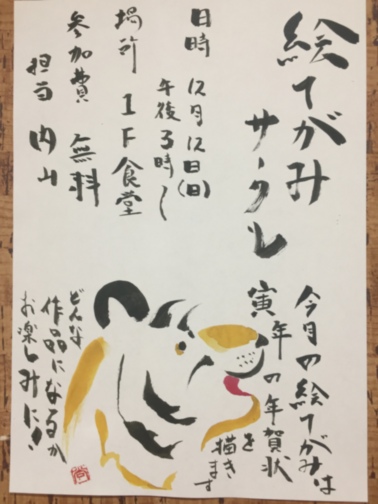 絵てがみ
サークル
日時 12月12日(日)
午後3時〜
場所 1F食堂
参加費 無料
担当 内山
今月の絵てがみは
寅年の年賀状
を描きます
どんな
作品になるか
お楽しみに!